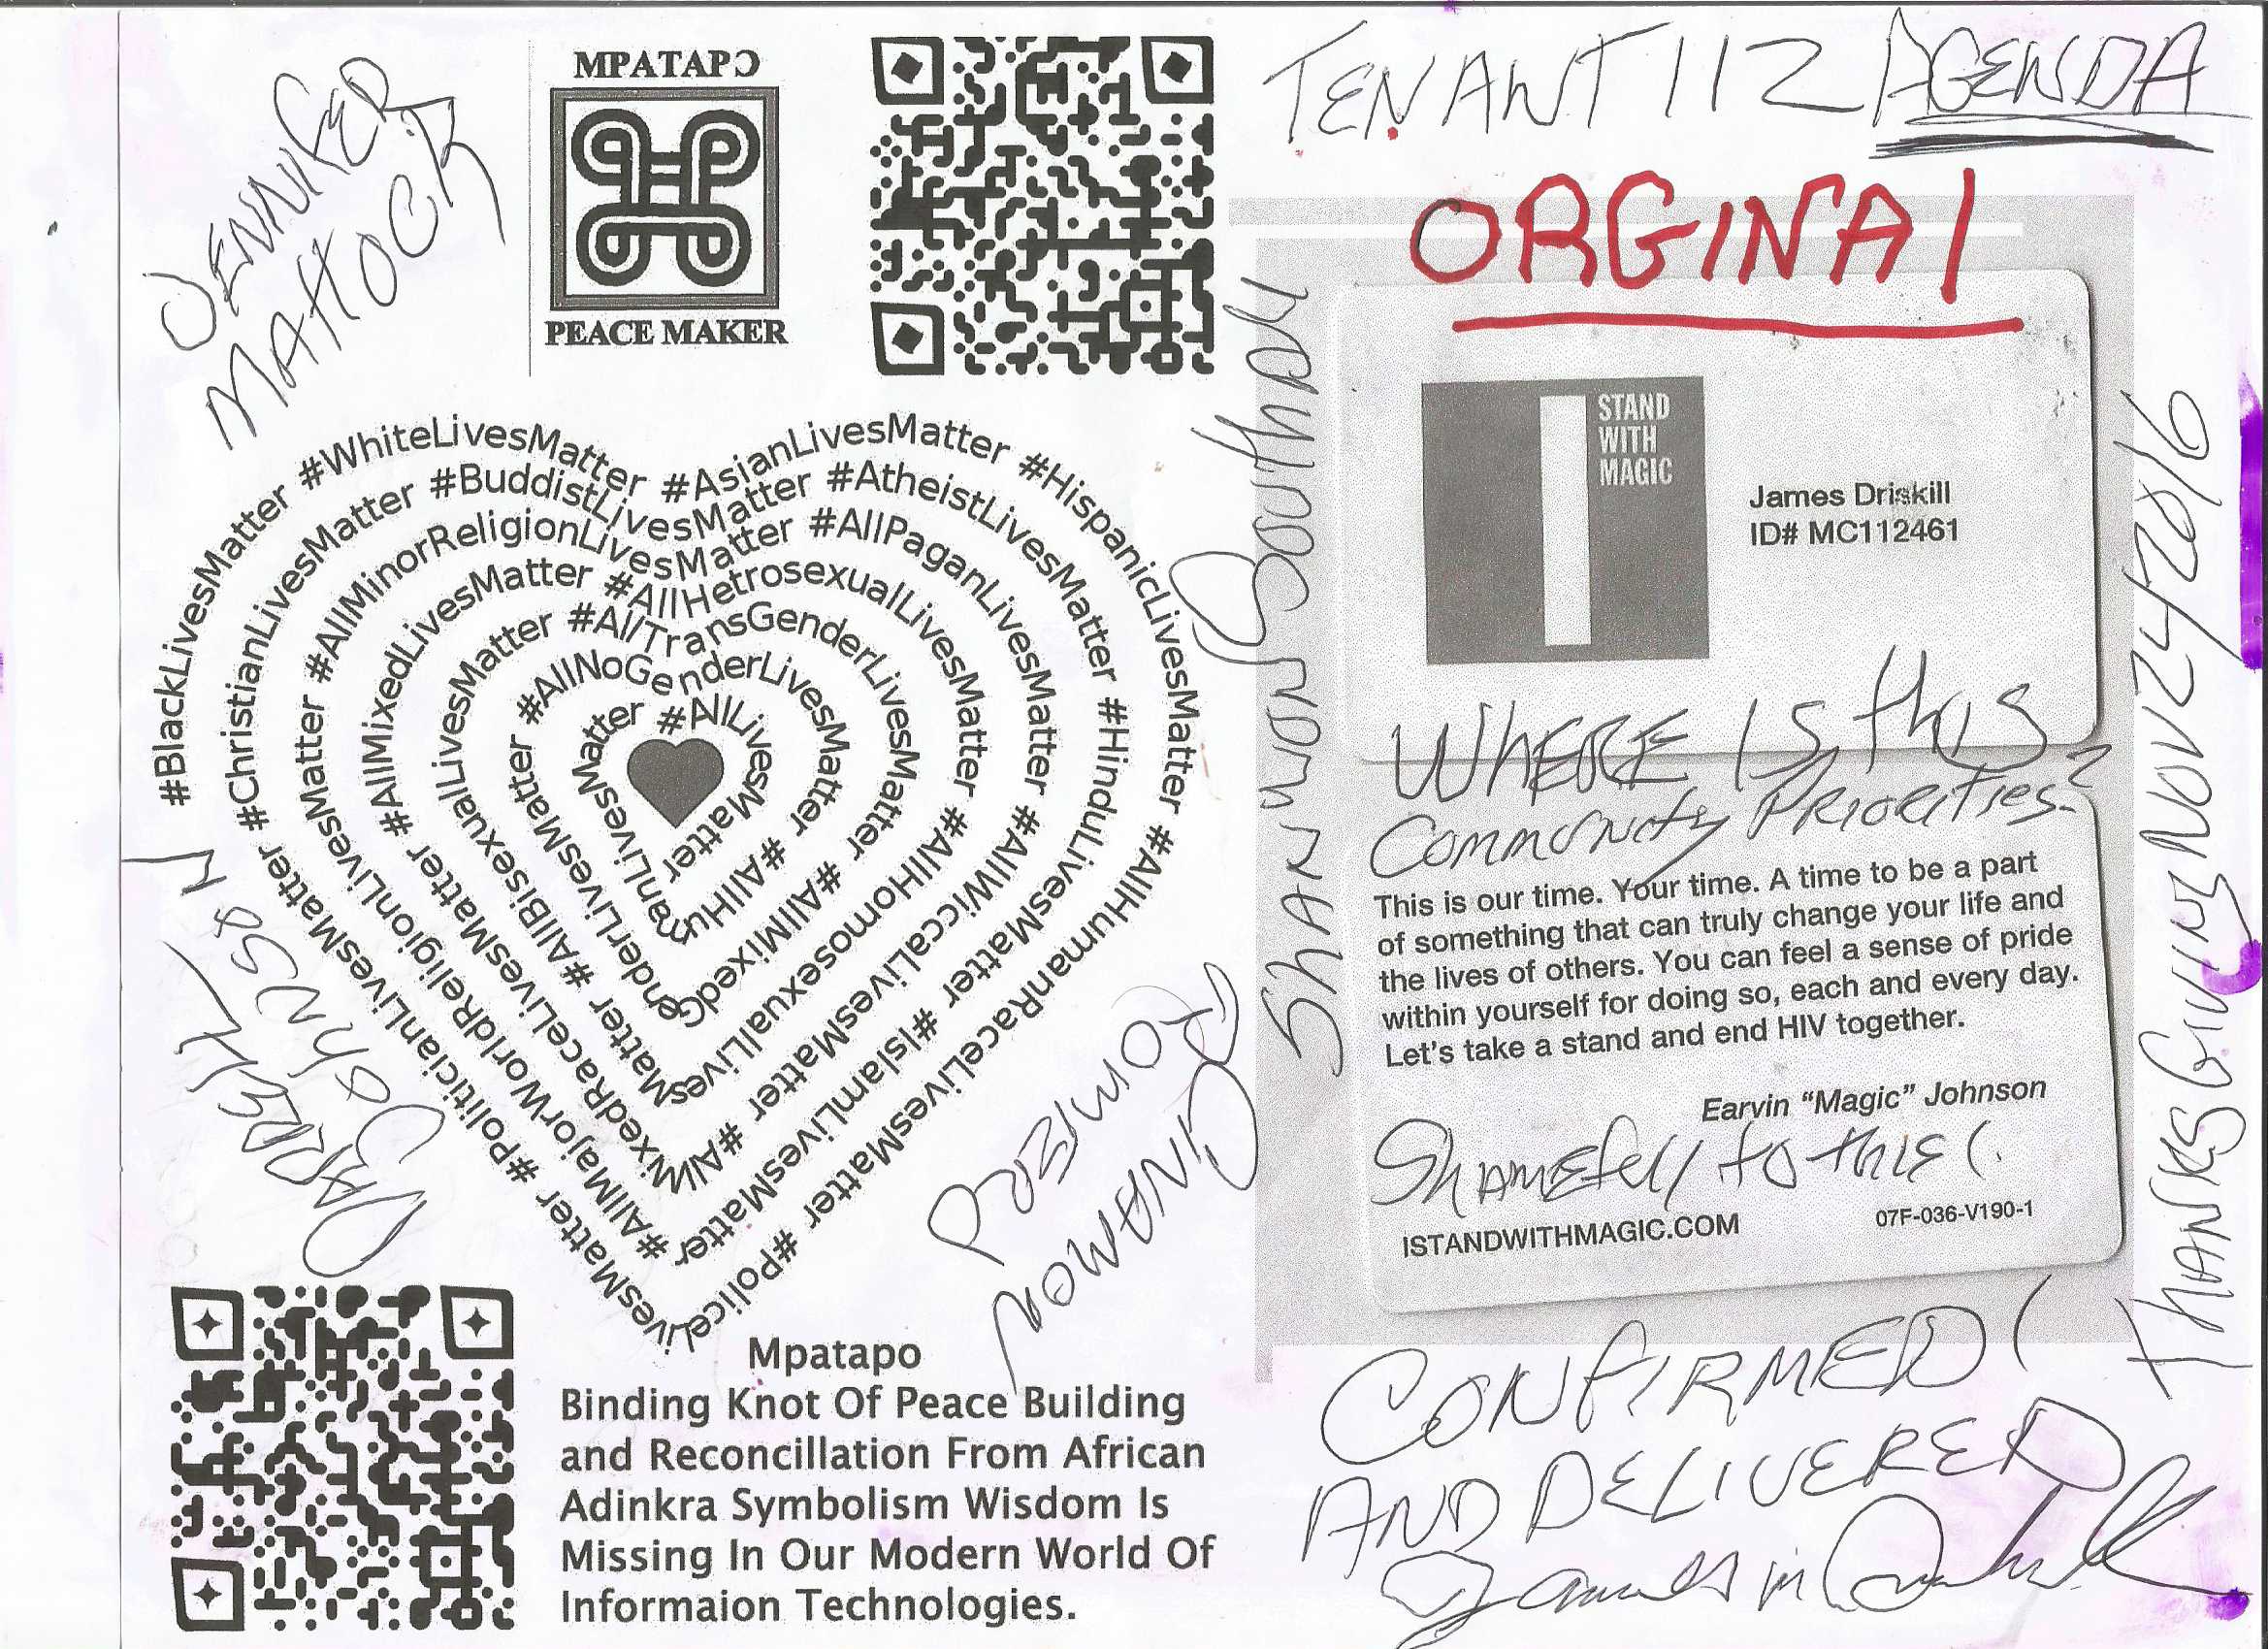 JENNIFER
MATTOCK
MPATAPƆ
PEACE MAKER
TENANT 112 AGENDA
ORGINAl
STAND
WITH
MAGIC
James Driskill
ID# MC112461
WHERE IS this
Community PRiORities?
This is our time. Your time. A time to be a part
of something that can truly change your life and
the lives of others. You can feel a sense of pride
within yourself for doing so, each and every day.
Let's take a stand and end HIV together.
Earvin "Magic" Johnson
Shamefull to this!
ISTANDWITHMAGIC.COM
07F-036-V190-1
THANKSGIVING NOV 24 2016
SHANNON
#BlackLivesMatter #WhiteLivesMatter #AsianLivesMatter #HispanicLivesMatter #AllHumanRaceLivesMatter #PoliceLivesMatter #PoliticianLivesMatter
#ChristianLivesMatter #BuddistLivesMatter #AtheistLivesMatter #HinduLivesMatter #IslamLivesMatter #AllMajorWorldReligionLivesMatter
#AllMinorReligionLivesMatter #AllPaganLivesMatter #AllWiccaLivesMatter #AllMixedRaceLivesMatter
#AllMixedLivesMatter #AllHetrosexualLivesMatter #AllHomosexualLivesMatter #AllBisexualLivesMatter
#AllTransGenderLivesMatter #AllMixedGenderLivesMatter
#AllNoGenderLivesMatter #AllHumanLivesMatter
#AllLivesMatter
DARRELL
JohnSoN
Mpatapo
Binding Knot Of Peace Building
and Reconcillation From African
Adinkra Symbolism Wisdom Is
Missing In Our Modern World Of
Informaion Technologies.
CONFIRMED!
AND DELIVERED